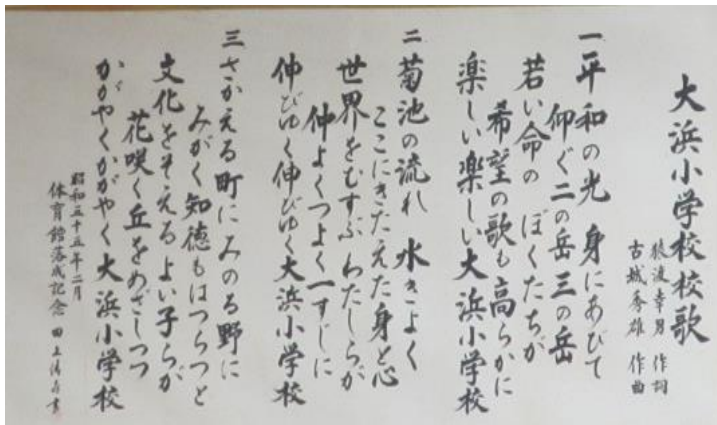 大浜小学校校歌
猿渡幸男 作詞
古城秀雄 作曲
一 平和の光 身にあびて
仰ぐ二の岳三の岳
若い命の ぼくたちが
希望の歌も高らかに
楽しい楽しい大浜小学校
二 菊池の流れ 水きよく
ここにきたえた身と心
世界をむすぶ わたしらが
仲よくつよく一すじに
伸びゆく伸びゆく大浜小学校
三 さかえる町にみのる野に
みがく知徳もはつらつと
文化をそえるよい子らが
花咲く丘をめざしつつ
かがやくかがやく大浜小学校
昭和五十五年二月
体育館落成記念 田上